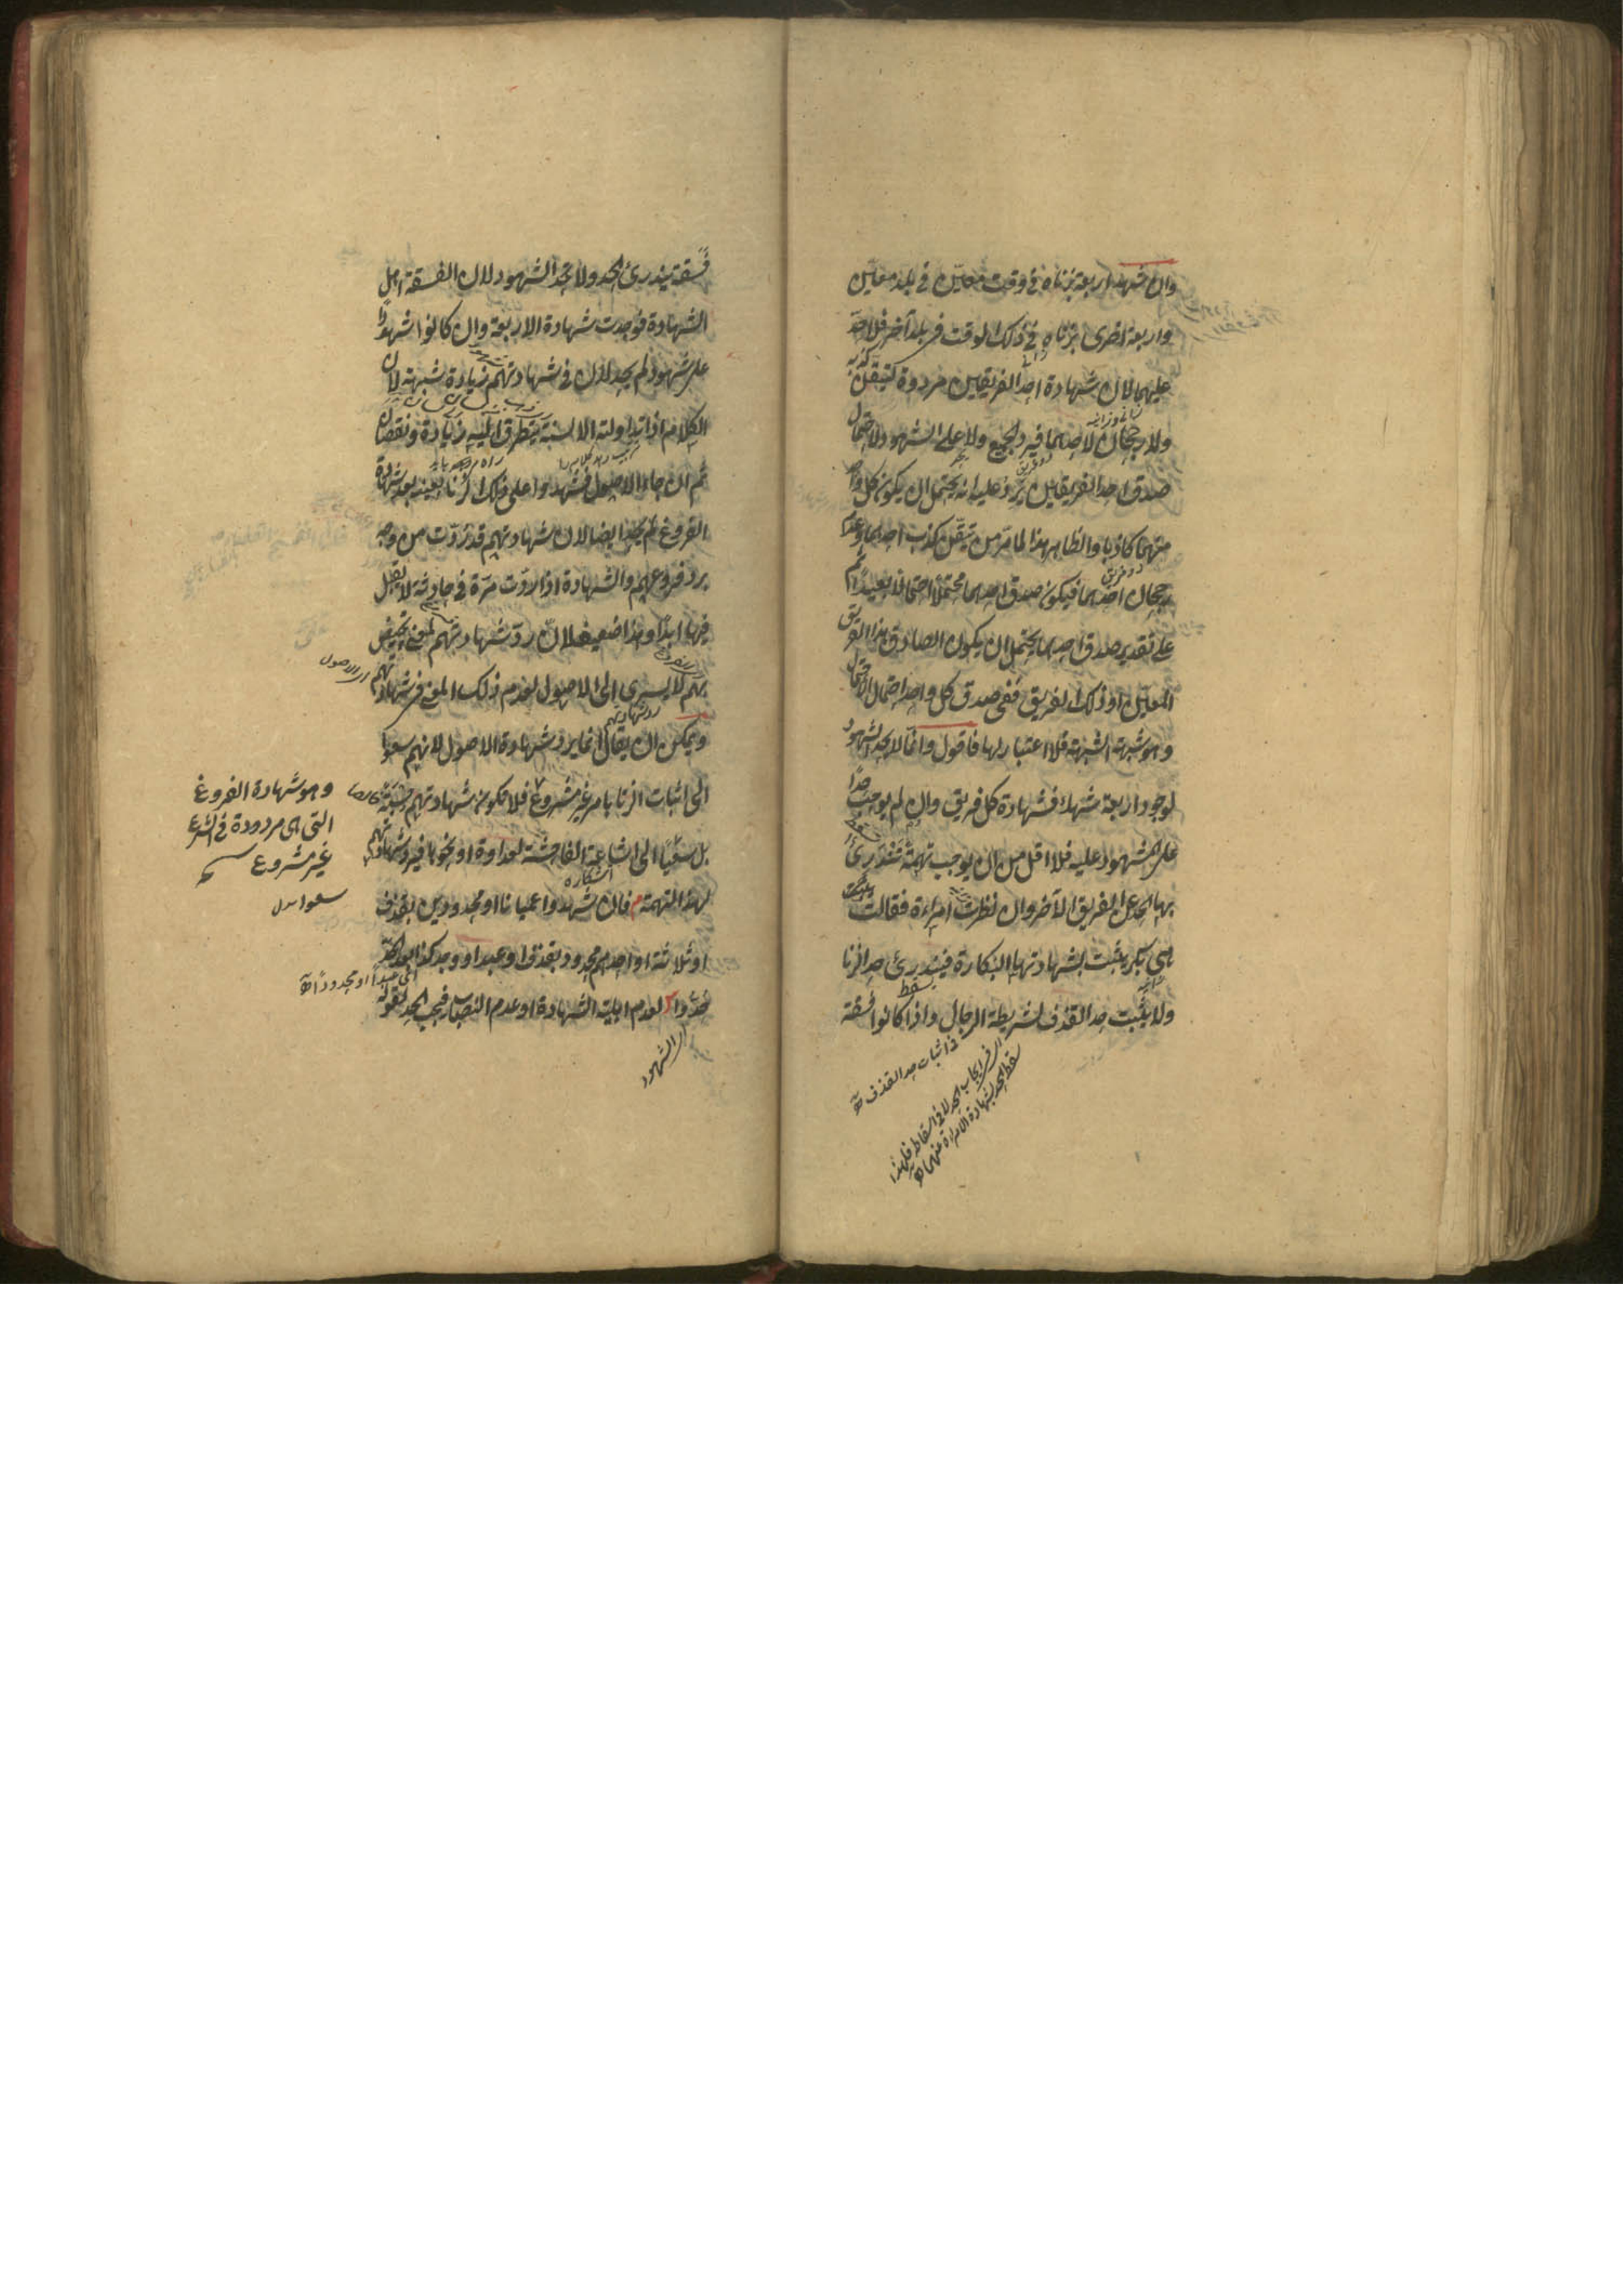 وان شهد اربعة بزناه في وقت معين في بلد معين
واربعة اخرى بزناه في ذلك الوقت في بلد آخر فلا حد
عليهما لان شهادة احد الفريقين مردودة لتيقن كذبه
ولا رجحان لاحدهما فيرد الجميع ولا على الشهود لاحتمال
صدق احد الفريقين يرد عليه انه يحتمل ان يكون كل واحد
منهما كاذبا والظاهر هذا لما مر من تيقن كذب احدهما وعدم
رجحان احدهما فيكون صدق احدهما محتملا احتمالا بعيدا ثم
على تقدير صدق احدهما يحتمل ان يكون الصادق هذا الفريق
المعين او ذلك الفريق ففي صدق كل واحد احتمال الاحتمال
وهو شبهة الشبهة فلا اعتبار لها فاقول وانما لا يحد الشهود
لوجود اربعة شهداء فشهادة كل فريق وان لم يوجب حدا
على المشهود عليه فلا اقل من ان يوجب تهمة تندرئ
بها الحد عن الفريق الآخر وان نظرت امراءة فقالت
هي بكر يثبت بشهادتها البكارة فيندرئ حد الزنا
سقط
ولا يثبت حد القذف لشريطة الرجال واذا كانوا فسقة
في اثبات حد القذف
اى في ايجاب الحد لا في اسقاطه فلهذا
سقط الحد بشهادة الامراءة عنهما
فسقة يندرئ الحد ولا تحد الشهود لان الفسقة اهل
الشهادة فوجدت شهادة الاربعة وان كانوا شهدوا
على شهود لم يحد لان في شهادتهم زيادة شبهة لان
الكلام اذا تداولته الالسنة يتطرق اليه زيادة ونقصان
ثم ان جاء الاصول فشهدوا على ذلك الزنا بعينه بعد شهادة
الفروع لم يحد ايضا لان شهادتهم قد ردت من وجه
برد فروعهم والشهادة اذا ردت مرة في حادثة لا يقبل
فيها ابدا وهذا ضعيف لان رد شهادتهم لمعنى يختص
بهم لا يسرى الى الاصول لعدم ذلك المعنى في شهادتهم
اى الاصول
رد شهادتهم
ويمكن ان يقال انما يرد شهادة الاصول لانهم سعوا
الى اثبات الزنا بامر غير مشروع فلا يكون شهادتهم حسبة
وهو شهادة الفروع
التى هى مردودة في الشرع
غير مشروع
بل سعيا الى اشاعة الفاحشة لعداوة او نحوها فيرد شهادتهم
آشكاره
لهذه التهمة فان شهدوا عميانا او محدودين بقذف
او ثلاثة او احدهم محدود بقذف او عبد او وجد كذا بعد الحد
اى عبدا او محدودا
حدوا لعدم اهلية الشهادة او عدم النصاب فيجب الحد لقوله
اى الشهود